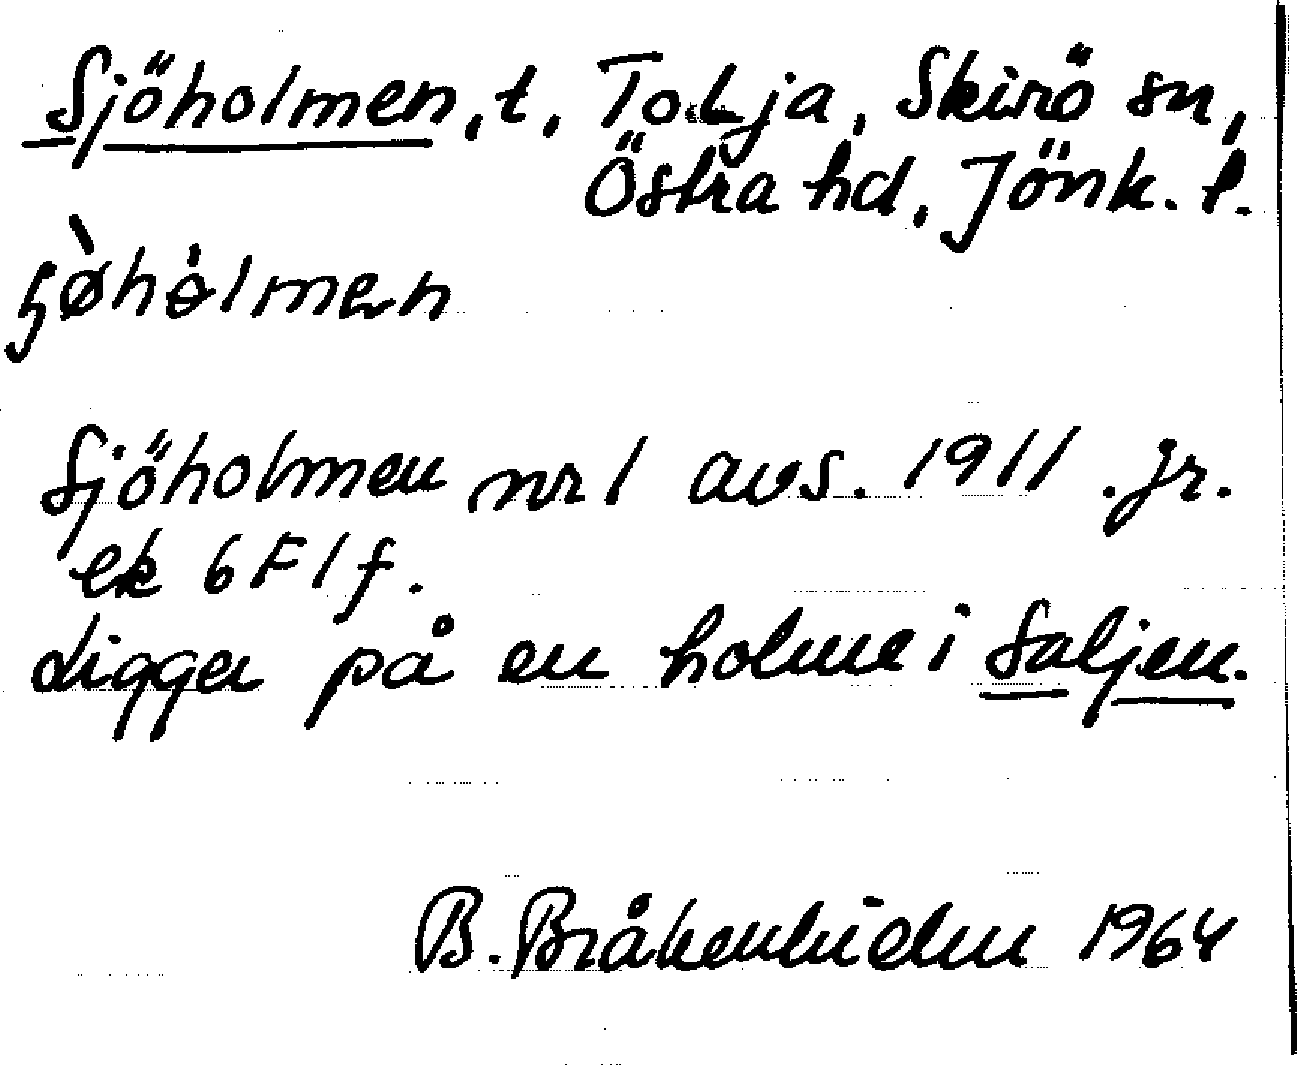 Sjöholmen, t, Tolja, Skirö sn,
Östra hd, Jönk. l.
Sjöholmen nr 1 avs. 1911 . jr.
ek 6 F 1 f.
Ligger på en holme i Saljen.
B. 1964